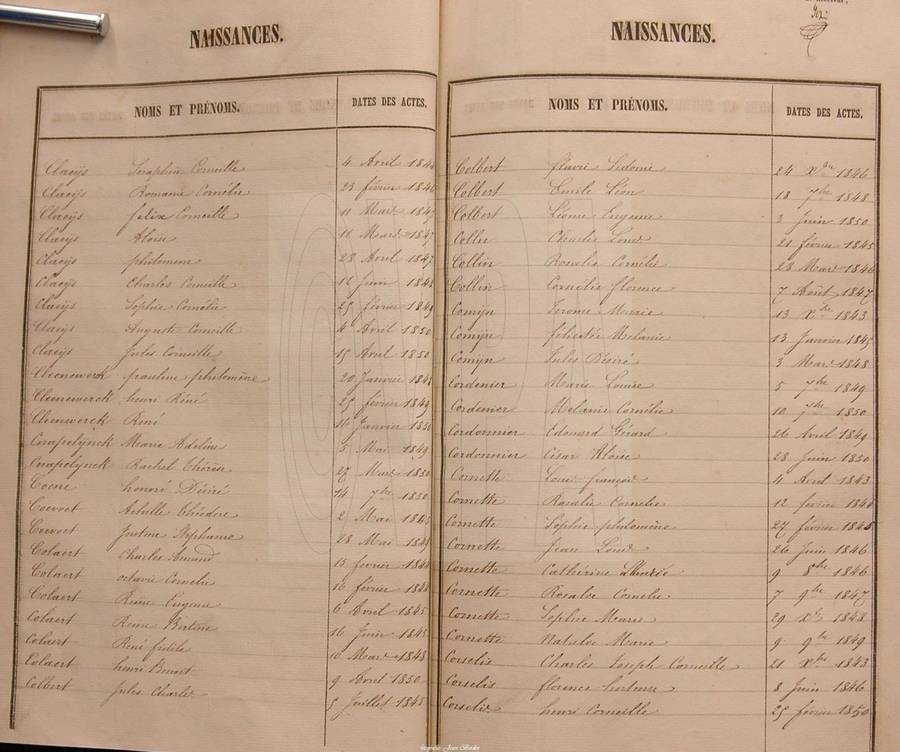 NAISSANCES.
NOMS ET PRÉNOMS. DATES DES ACTES.
Claeijs Seraphin Corneille 4 Avril 1844
Claeijs Romanie Cornélie 23 février 1846
Claeijs félix Corneille 11 Mars 1847
Claeijs Aloïse 11 Mars 1847
Claeijs philomene 28 Avril 1847
Claeijs Charles Corneille 12 Juin 1848
Claeijs Sophie Cornélie 25 février 1849
Claeijs Auguste Corneille 4 Avril 1850
Claeijs Jules Corneille 15 Avril 1850
Cleenewerck pauline philomène 20 Janvier 1848
Cleenewerck henri Réné 25 février 1849
Cleenewerck René 16 Janvier 1850
Cnapelynck Marie Adeline 5 Mai 1849
Cnapelynck Rachel Thérèse 27 Mars 1850
Coene honoré Désiré 14 7bre 1850
Coevoet Achille Théodore 2 Mai 1848
Coevoet Justine Stéphanie 28 Mai 1849
Colaert Charles Amand 15 février 1844
Colaert octavie Cornelie 16 février 1844
Colaert Reine Eugenie 6 Avril 1845
Colaert Reine Bertine 16 Juin 1845
Colaert René fidèle 10 Mars 1848
Colaert henri Benoit 9 Avril 1850
Colbert Jules Charles 5 Juillet 1845
NAISSANCES.
NOMS ET PRÉNOMS. DATES DES ACTES.
Colbert flavie Sidonie 24 Xbre 1846
Colbert Emile Léon 18 7bre 1848
Colbert Léonie Eugenie 3 Juin 1850
Collin Charles Louis 21 février 1845
Collin Rosalie Cornélie 28 Mars 1846
Collin Cornélie florence 7 Août 1847
Comijn Jerome Marie 13 Xbre 1843
Comijn félicité Melanie 13 Janvier 1845
Comijn Jules Désiré 3 Mars 1848
Cordenier Marie Louise 5 7bre 1849
Cordenier Melanie Cornélie 10 7bre 1850
Cordonnier Edouard Gérard 26 Avril 1849
Cordonnier César Aloïse 28 Juin 1850
Cornette Louis françois 4 Avril 1843
Cornette Rosalie Cornelie 12 fevrier 1844
Cornette Sophie philomène 27 février 1845
Cornette Jean Louis 26 Juin 1846
Cornette Cathérine 9 8bre 1846
Cornette Rosalie Cornelie 7 9bre 1847
Cornette Sophie Marie 29 Xbre 1848
Cornette Natalie Marie 9 9bre 1849
Corselis Charles Joseph Corneille 21 Xbre 1843
Corselis florence hortense 8 Juin 1846
Corselis henri Corneille 25 février 1850